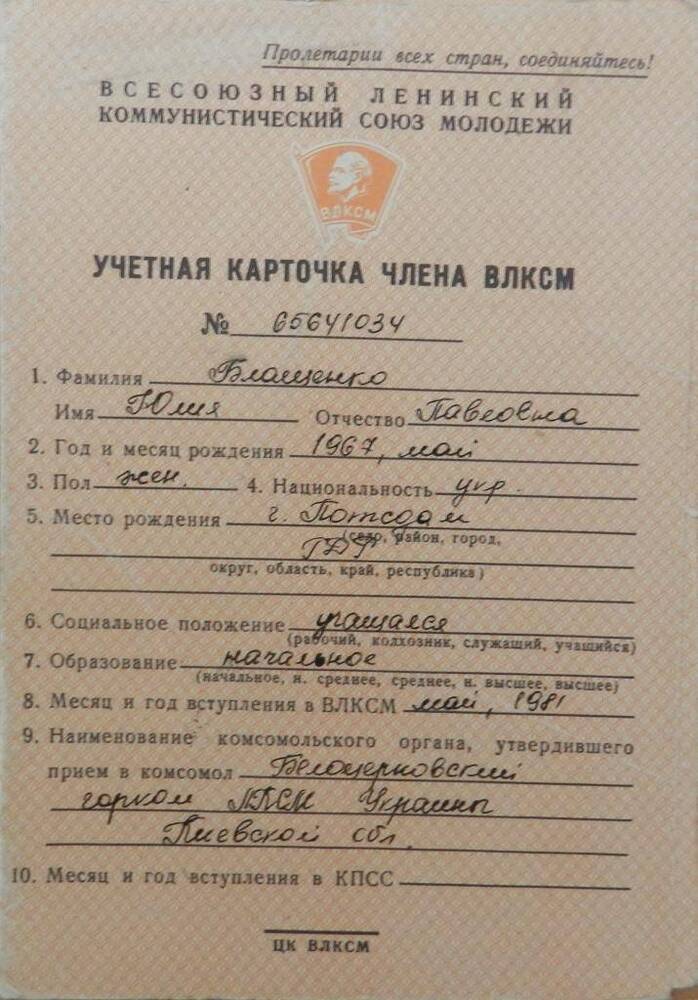 Пролетарии всех стран, соединяйтесь!
ВСЕСОЮЗНЫЙ ЛЕНИНСКИЙ
КОММУНИСТИЧЕСКИЙ СОЮЗ МОЛОДЕЖИ
ВЛКСМ
УЧЕТНАЯ КАРТОЧКА ЧЛЕНА ВЛКСМ
№ 65641034
1. Фамилия Блащенко
Имя Юлия Отчество Павловна
2. Год и месяц рождения 1967, май
3. Пол жен. 4. Национальность укр.
5. Место рождения г. Потсдам
(село, район, город,
ГДР
округ, область, край, республика)
6. Социальное положение учащаяся
(рабочий, колхозник, служащий, учащийся)
7. Образование начальное
(начальное, н. среднее, среднее, н. высшее, высшее)
8. Месяц и год вступления в ВЛКСМ май, 1981
9. Наименование комсомольского органа, утвердившего
прием в комсомол Белоцерковский
горком ЛКСМ Украины
Киевской обл.
10. Месяц и год вступления в КПСС
ЦК ВЛКСМ